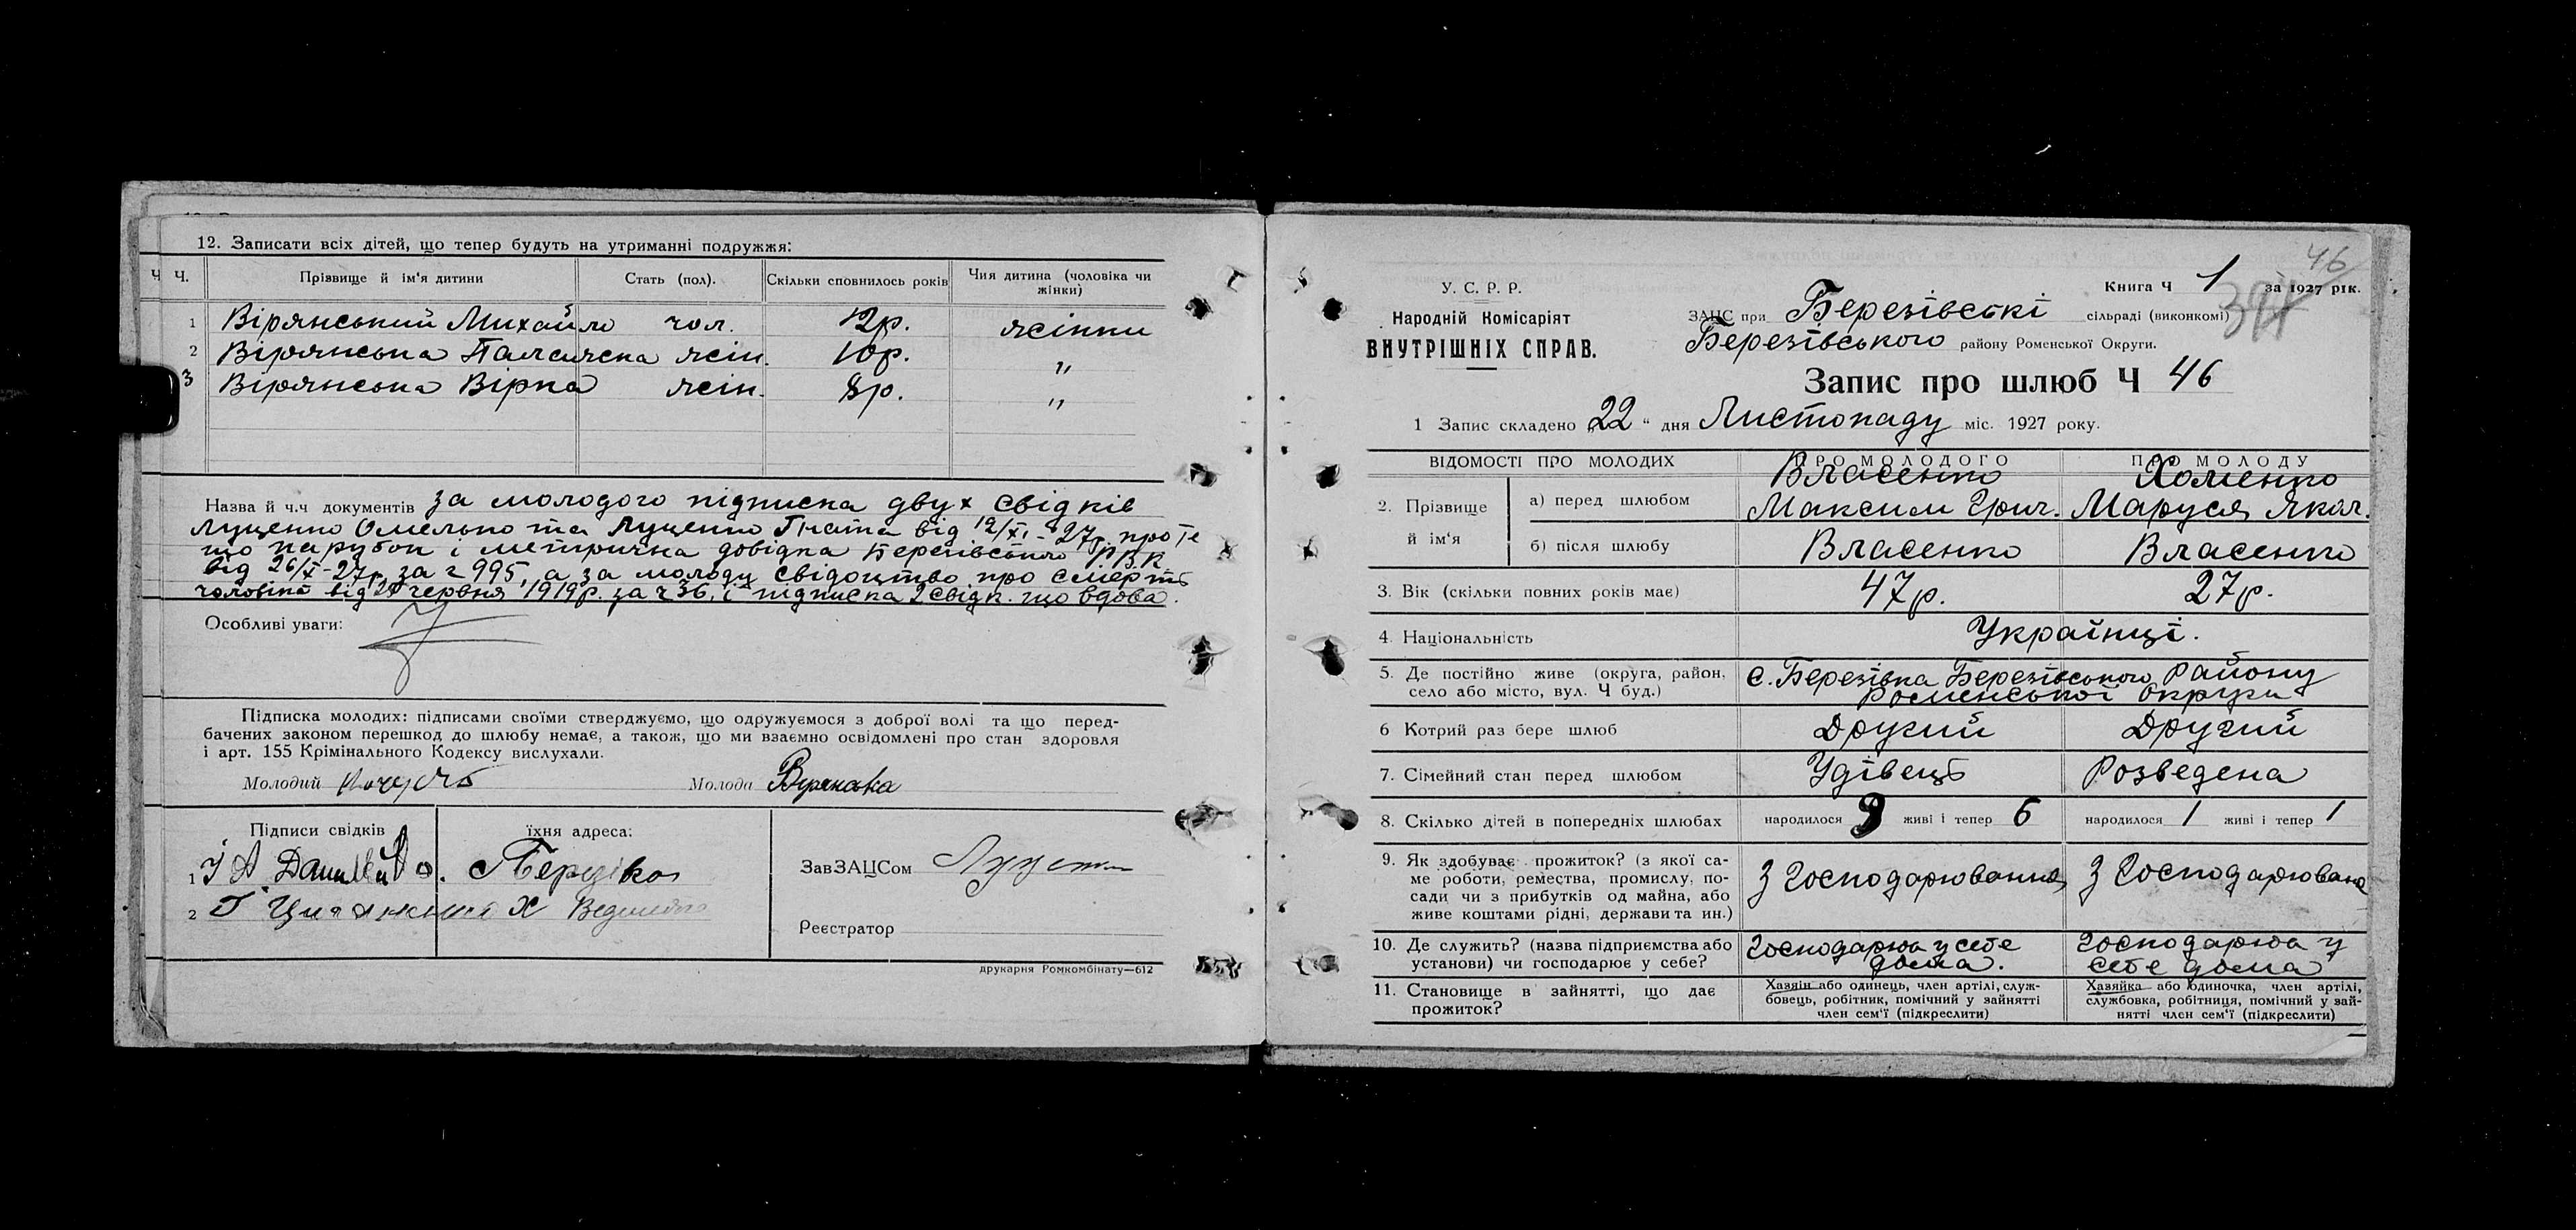 12. Записати всіх дітей, що тепер будуть на утриманні подружжя:
Ч Ч. Прізвище й ім'я дитини Стать (пол). Скільки сповнилось років Чия дитина (чоловіка чи жінки)
1 Вірянський Михайло чол. 12р. жінки
2 Вірянська Палажка жін. 10р. "
3 Вірянська Вірка жін. 8р. "
Назва й ч.ч документів за молодого підписка двух свідків
Луценко Омелько та Луценко Гната від 12/XI-27р. про те
що парубок і метрична довідка Березівського РВК
від 26/X-27р. за г 995, а за молоду свідоцтво про смерть
чоловіка від червня 1919р. за г 36, і підписка 2 свідк. що вдова.
Особливі уваги:
Підписка молодих: підписами своїми стверджуємо, що одружуємося з доброї волі та що перед-
бачених законом перешкод до шлюбу немає, а також, що ми взаємно освідомлені про стан здоровля
і арт. 155 Крімінального Кодексу вислухали.
Молодий Молода
Підписи свідків їхня адреса:
1
2
ЗавЗАЦСом
Реєстратор
друкарня Ромкомбінату—612
46
У. С. Р. Р.
Народній Комісаріят
ВНУТРІШНІХ СПРАВ.
Книга Ч 1 за 1927 рік.
ЗАЦС при Березівскі сільраді (виконкомі)
Березівського району Роменської Округи.
Запис про шлюб Ч 46
1 Запис складено „22" дня Листопаду міс. 1927 року.
ВІДОМОСТІ ПРО МОЛОДИХ ПРО МОЛОДОГО ПРО МОЛОДУ
2. Прізвище й ім'я
а) перед шлюбом Власенко Максим Григ. Хоменко Маруся Якол.
б) після шлюбу Власенко Власенко
3. Вік (скільки повних років має) 47р. 27р.
4. Національність Українці.
5. Де постійно живе (округа, район, село або місто, вул. Ч буд.) с. Березівка Березівського Району Роменської округи
6 Котрий раз бере шлюб Другий Другий
7. Сімейний стан перед шлюбом Удівець Розведена
8. Скілько дітей в попередніх шлюбах народилося 9 живі і тепер 6 народилося 1 живі і тепер 1
9. Як здобуває прожиток? (з якої са-
ме роботи, ремества, промислу, по-
сади чи з прибутків од майна, або
живе коштами рідні, держави та ин.) З господарювання З господарюваня
10. Де служить? (назва підприємства або
установи) чи господарює у себе? Господарюа у себе дома. Господарюа у себе дома
11. Становище в зайнятті, що дає
прожиток?
Хазяін або одинець, член артілі, служ-
бовець, робітник, помічний у зайнятті
член сем'ї (підкреслити)
Хазяйка або одиночка, член артілі,
службовка, робітниця, помічний у зай-
нятті член сем'ї (підкреслити)